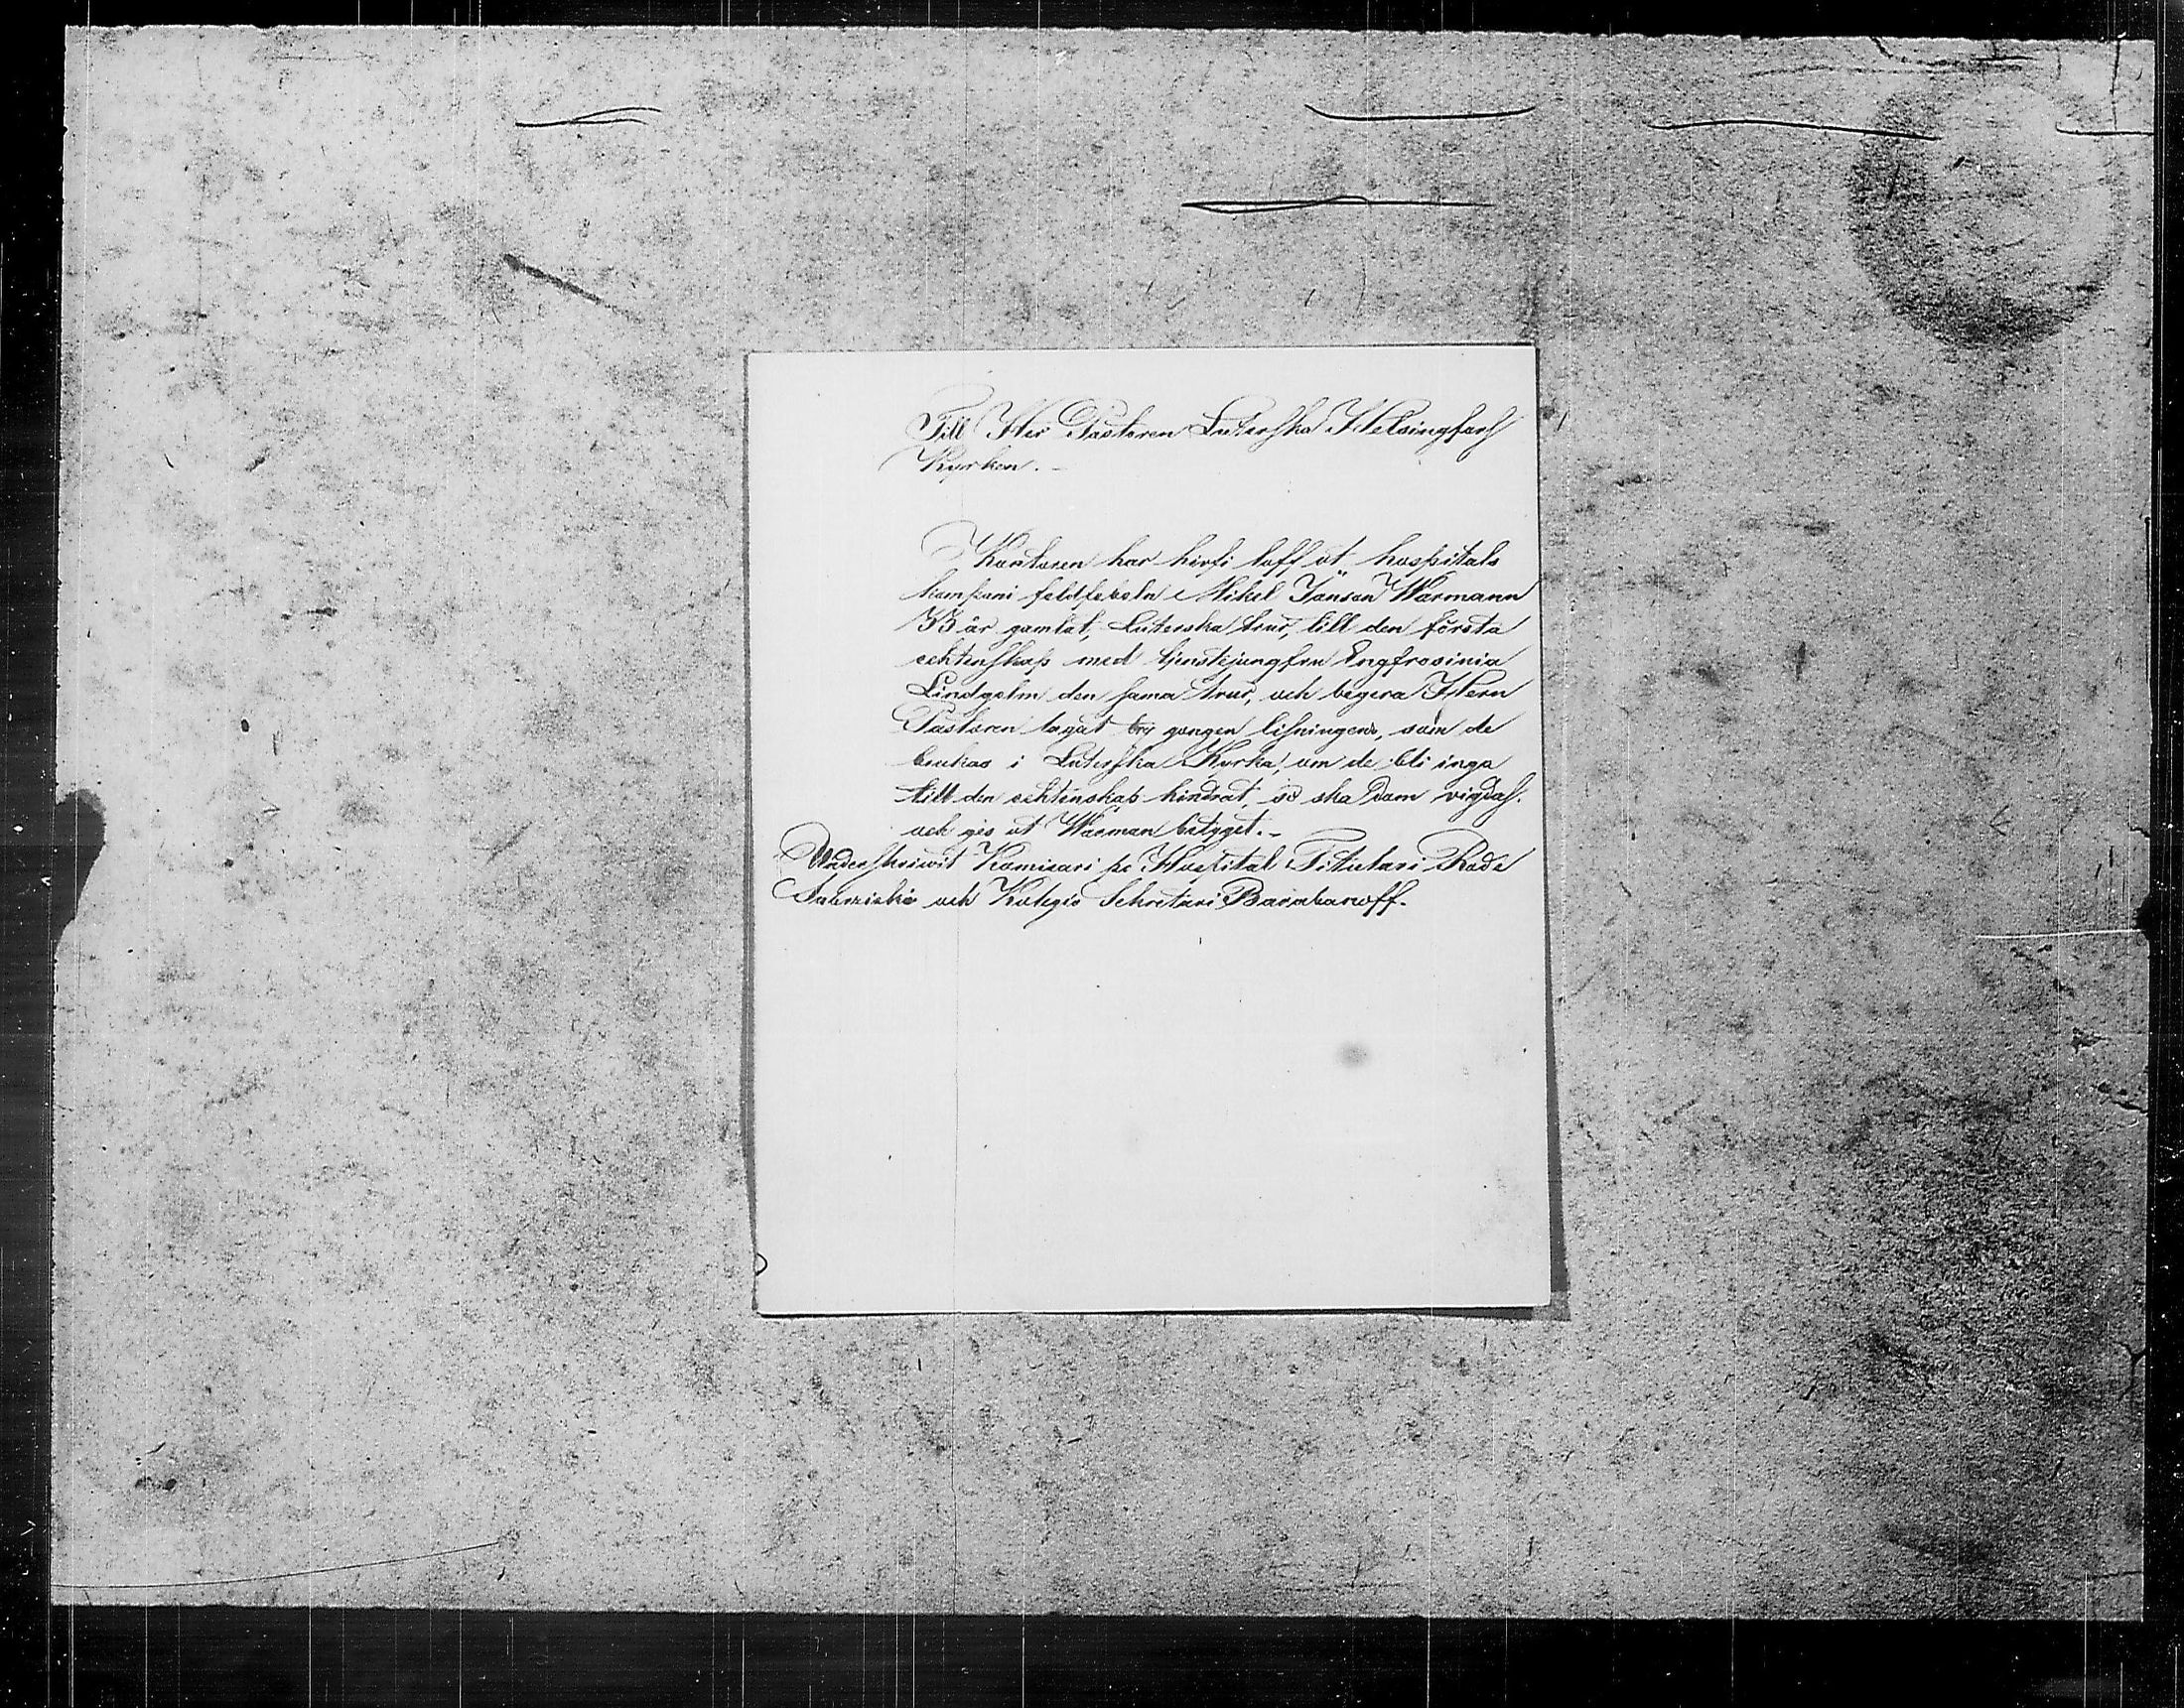 Till Her Pastoren Luterska Helsingfars
Kyrkan. -
Kantoren har hirfi loff at hospitals
kampani feldfebeln Mikel Jänsan Warmann
33 år gamlat, Luterska trur, till den första
echtenskap med tjenstejungfru Engfrosinia
Lindgolm den sama trur, och begera Hern
Pastoren tagat try gangen lisningens, som de
brukas i Luterska Kyrka, om de bli inga
till den echtenskab hindrat, so ska dam vigdas.
och ges at Warman betyget. -
Underskriwit Komisari po Hospital Titulari Rade
och Kolegio Sekretari Barabanoff.